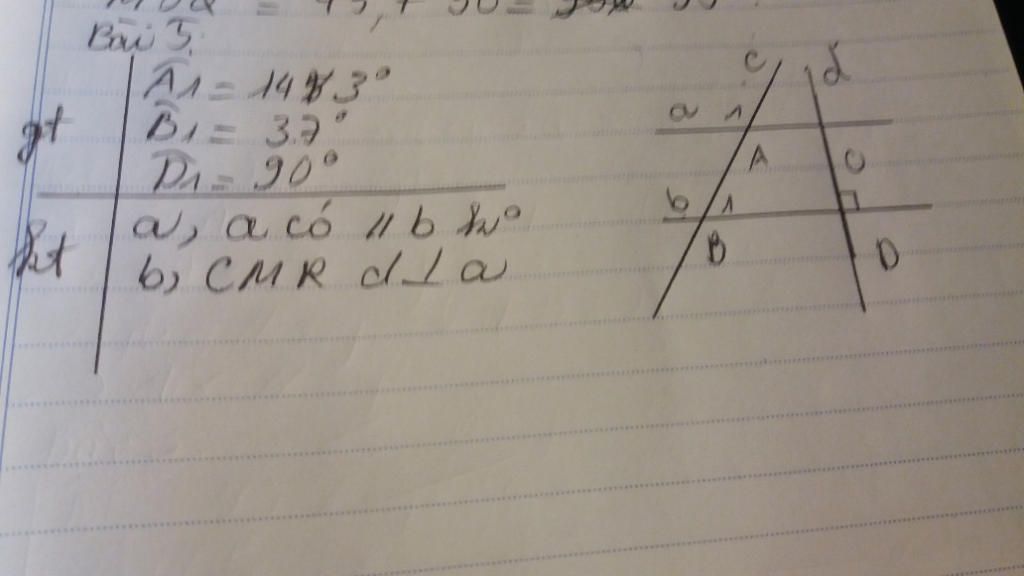 Bài 5.
Â1 = 143°
gt
B̂1 = 37°
D̂1 = 90°
kt
a, a có // b ko
b, CMR d⊥a
c
d
a 1
A
C
b 1
B
D